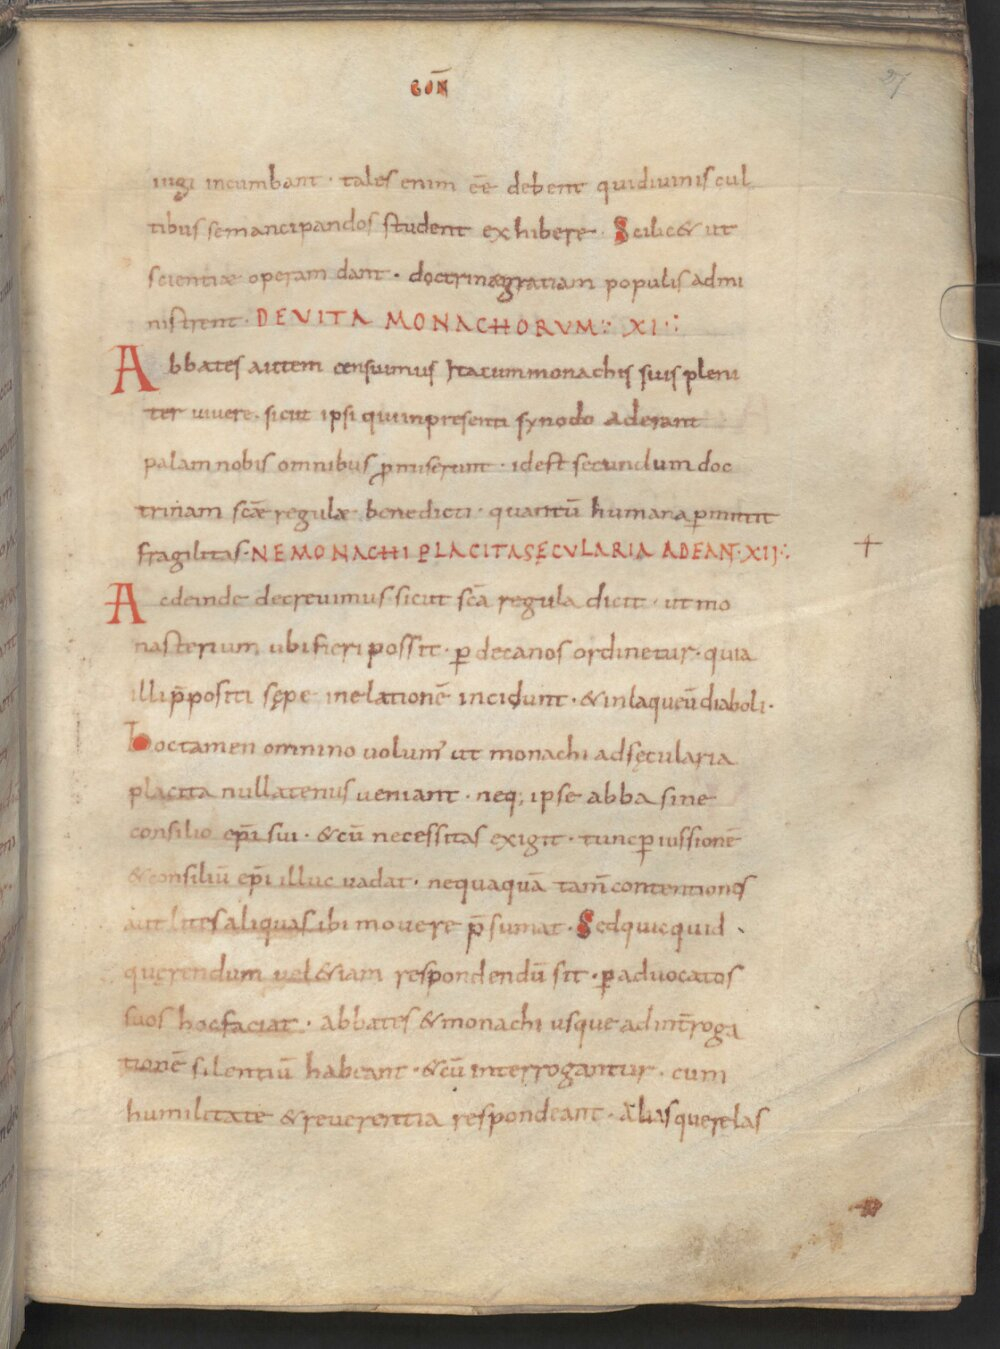 CON̄
27
iugi incumbant · tales enim eē debent qui diuinis cul
tibus se mancipandos student exhibere · Scilic& ut
scientiae operam dant · doctrinae gratiam populis admi
nistrent · DE VITA MONACHORVM ∵ XI ∵
Abbates autem censuimus Ita cum monachis suis pleni
ter uiuere · sicut ipsi qui in presenti synodo aderant
palam nobis omnibus ꝓmiserunt · id est secundum doc
trinam scǣ regulæ benedicti · quantū humana ꝑmittit
fragilitas · NE MONACHI PLACITA SĘCULARIA ADEANT · XII ∵
Ac deinde decreuimus sicut scā regula dicit · ut mo
nasterium ubi fieri possit · ꝑ decanos ordinetur · quia
illi p̄positi sępe in elationē incidunt · & in laqueū diaboli ·
Hoc tamen omnino uolum᾽ ut monachi ad sęcularia
placita nullatenus ueniant · neq; ipse abba sine
consilio ep̄i sui · & cū necessitas exigit · tunc ꝑ iussionē
& consiliū ep̄i illuc uadat · nequaquā tam̄ contentiones
aut lites aliquas ibi mouere p̄sumat · Sed quicquid
querendum uel &iam respondendū sit · ꝑ aduocatos
suos hoc faciat · abbates & monachi usque ad int̄roga
tionē silentiū habeant · & cū interrogantur · cum
humilitate & reuerentia respondeant · Alias querelas